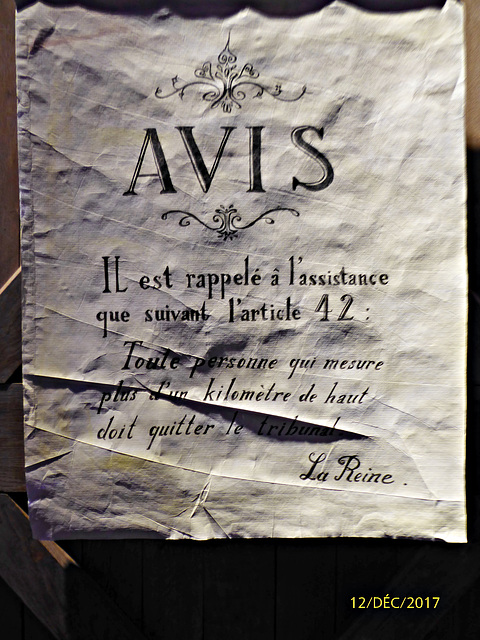 AVIS
IL est rappelé â l'assistance
que suivant l'article 42 :
Toute personne qui mesure
plus d'un kilomètre de haut
doit quitter le tribunal.
La Reine.
12/DÉC/2017